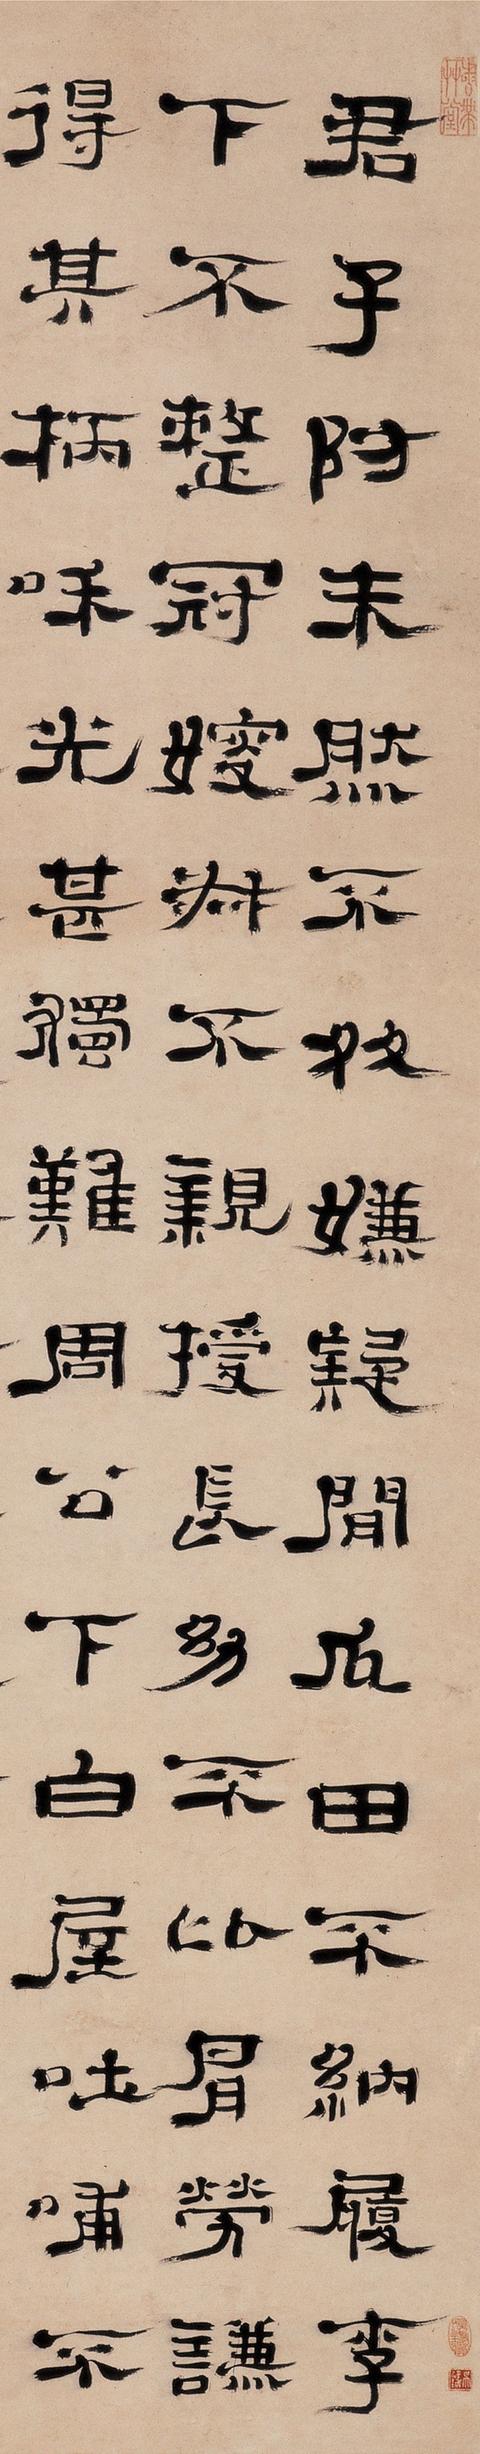 君子防未然不處嫌疑間瓜田不納履李
下不整冠嫂叔不親授長幼不比肩勞謙
得其柄咊光甚獨難周公下白屋吐哺不